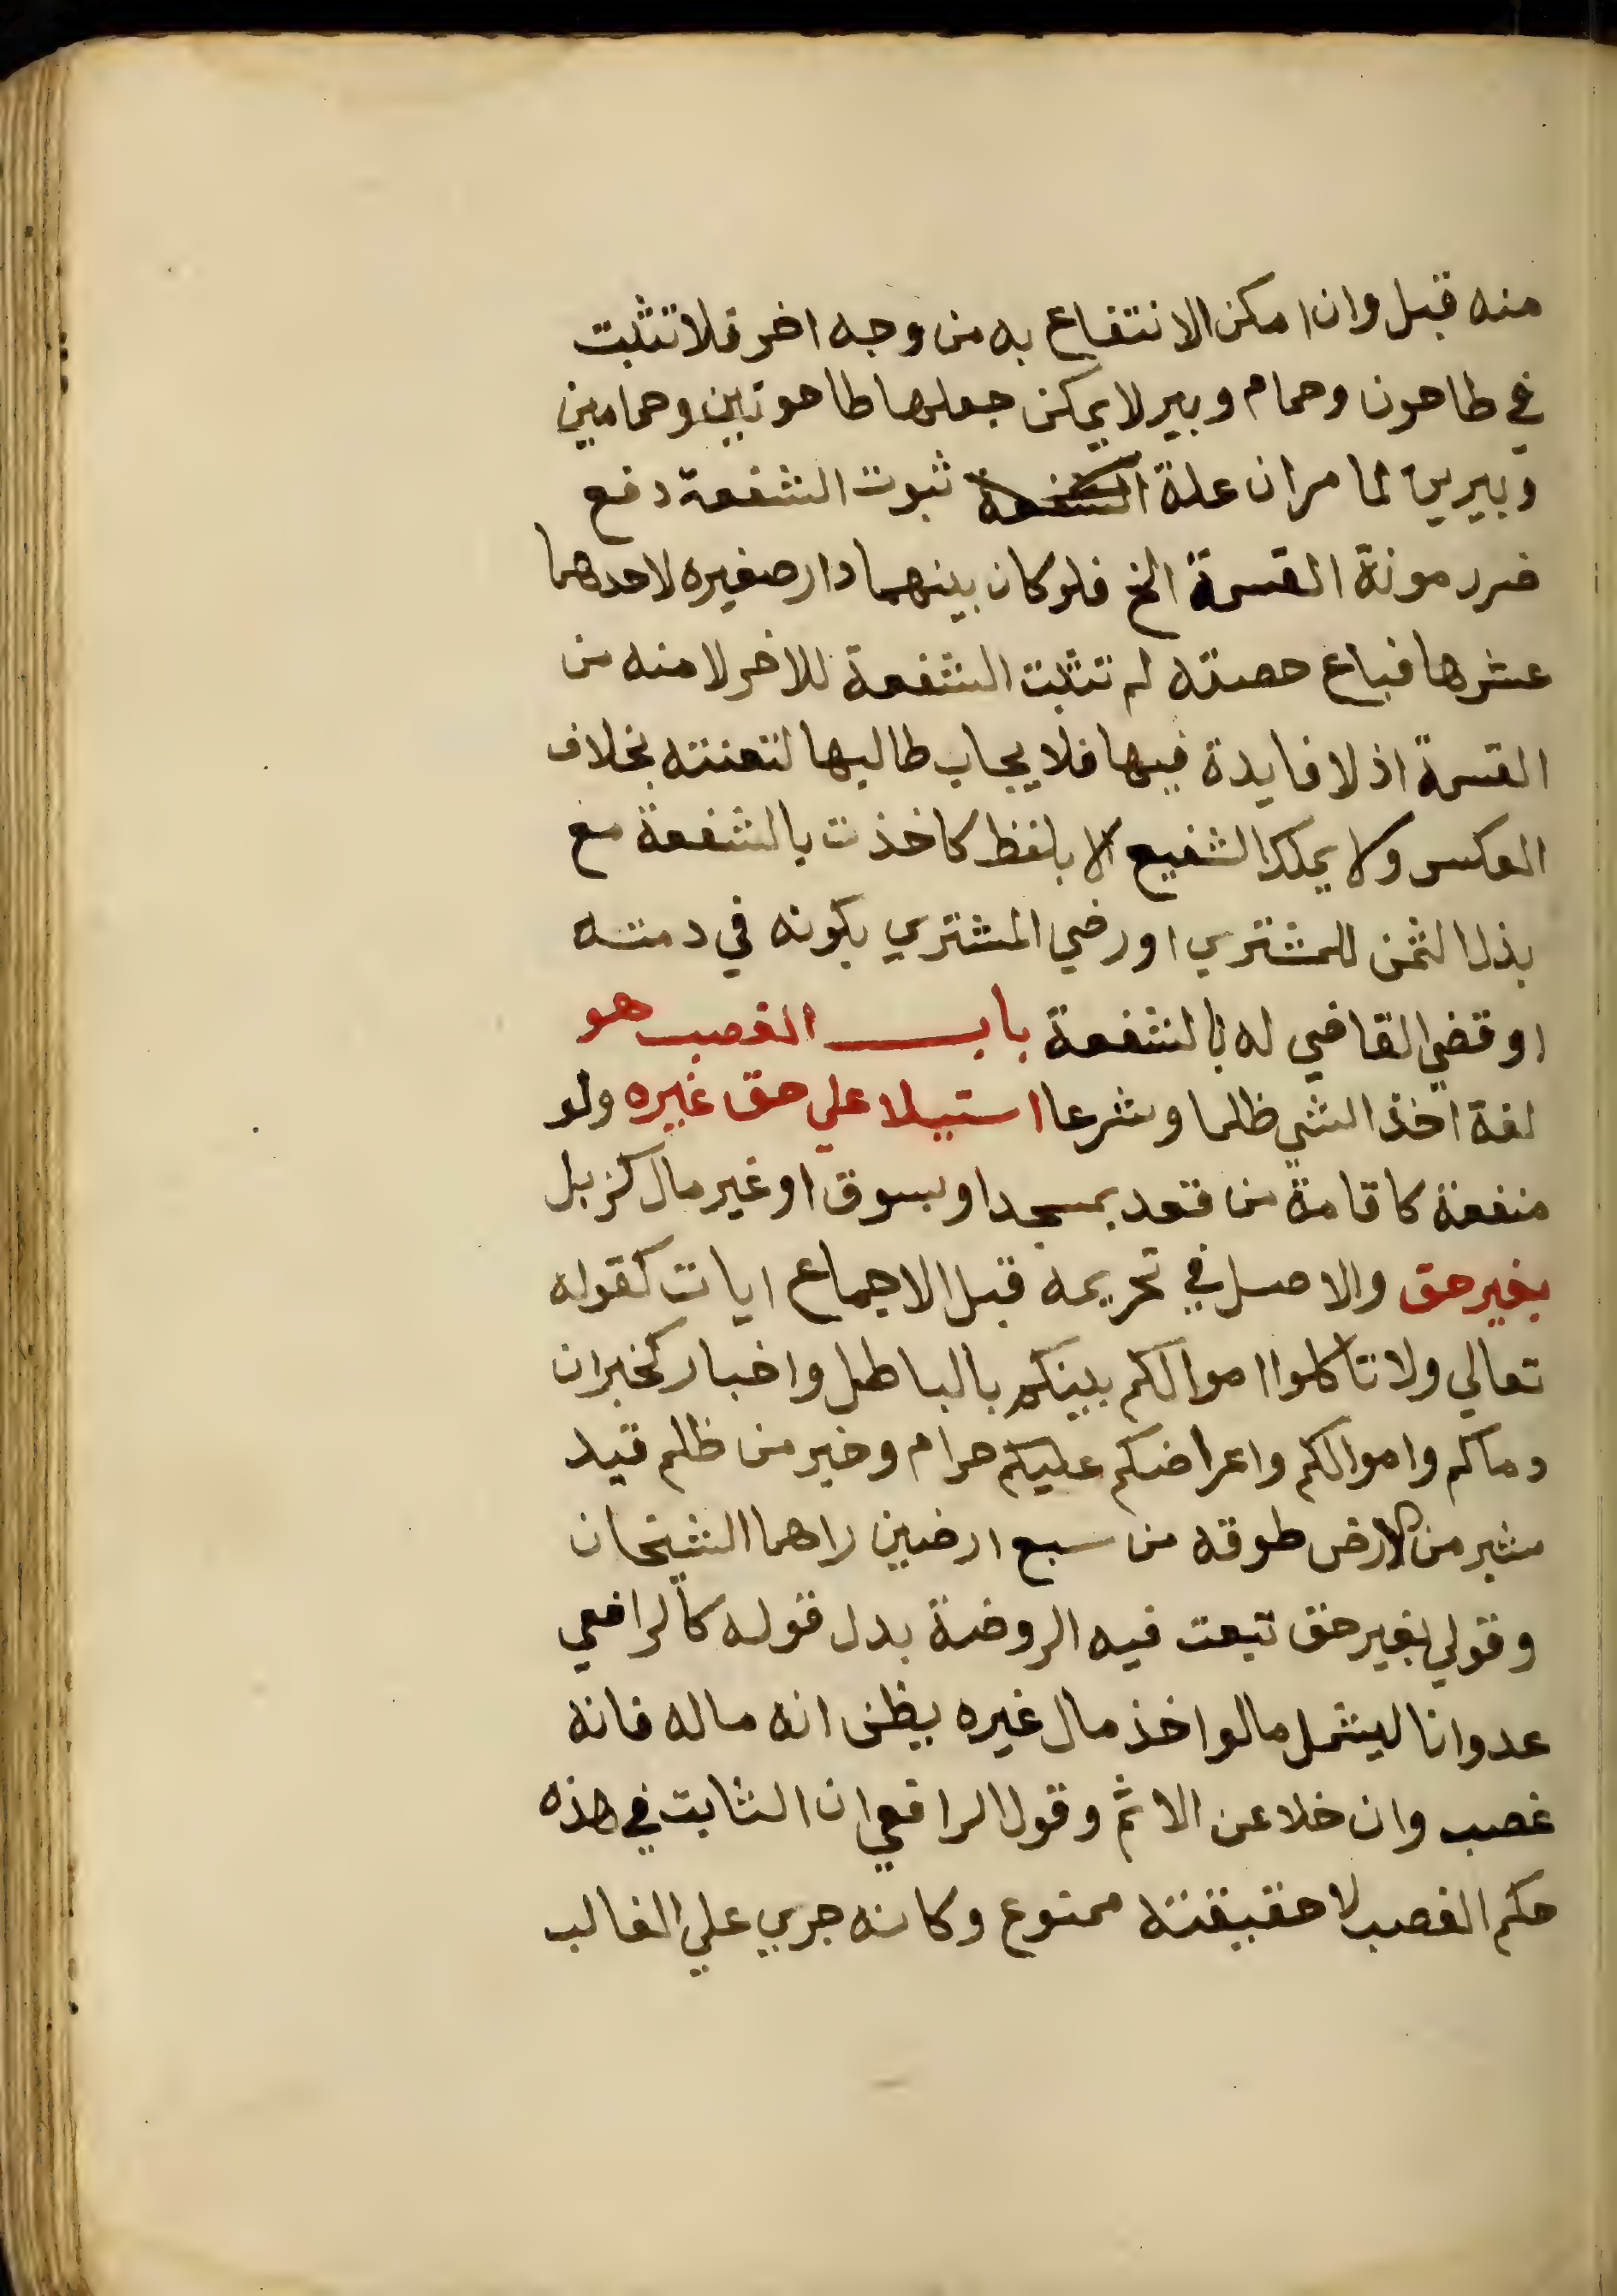 منه قبل وان امكن الانتفاع به من وجه اخر فلا تثبت
في طاحون وحمام وبير لا يمكن جعلها طاحونين وحمامين
وبيرين لما مر ان علة الشفعة ثبوت الشفعة دفع
ضرر مونة القسمة الخ فلو كان بينهما دار صغيره لاحدهما
عشرها فباع حصته لم تثبت الشفعة للاخر لامنه من
القسمة اذ لا فايدة فيها فلا يجاب طالبها لتعنته بخلاف
العكس ولا يملك الشفيع الا بلفظ كاخذت بالشفعة مع
بذل الثمن للمشتري او رضي المشتري بكونه في دمته
او قضي القاضي له بالشفعة باب الغصب هو
لغة اخذ الشي ظلما وشرعا استيلا علي حق غيره ولو
منفعة كاقامة من قعد بمسجد او بسوق او غير مال كزبل
بغير حق والاصل في تحريمه قبل الاجماع ايات كقوله
تعالي ولا تاكلوا اموالكم بينكم بالباطل واخبار كخبر ان
دماكم واموالكم واعراضكم عليكم حرام وخبر من ظلم قيد
شبر من الارض طوقه من سبع ارضين راهما الشيخان
وقولي بغير حق تبعت فيه الروضة بدل قوله كالرافعي
عدوانا ليشمل ما لو اخذ مال غيره يظن انه ماله فانه
غصب وان خلا عن الاثم وقول الرافعي ان الثابت في هذه
حكم الغصب لا حقيقته ممنوع وكانه جري علي الغالب